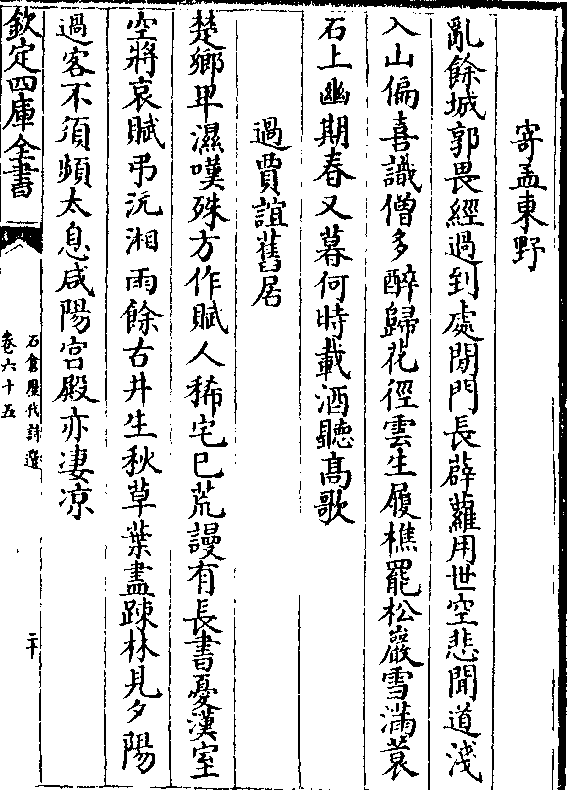 寄孟東野
亂餘城郭畏經過到處閉門長薜蘿用世空悲聞道淺
入山偏喜識僧多醉歸花徑雲生履樵罷松巖雪滿蓑
石上幽期春又暮何時載酒聽髙歌
過賈誼舊居
楚鄉卑濕嘆殊方作賦人稀宅已荒謾有長書憂漢室
空將哀賦弔沅湘雨餘古井生秋草葉盡踈林見夕陽
過客不須頻太息咸陽宮殿亦凄凉
欽定四庫全書
石倉歷代詩選
卷六十五
二十